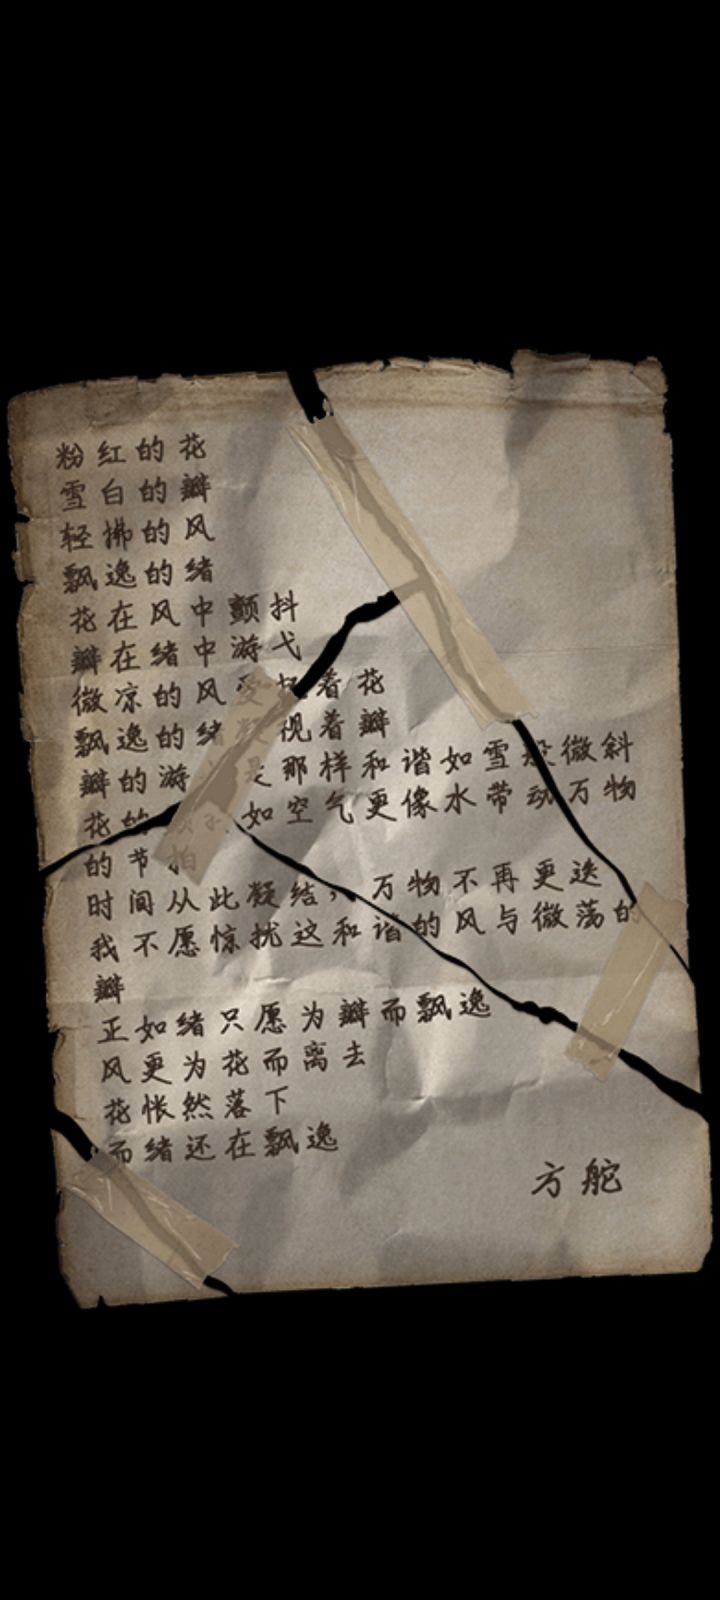 粉红的花
雪白的瓣
轻拂的风
飘逸的绪
花在风中颤抖
瓣在绪中游弋
微凉的风受抚着花
飘逸的绪凝视着瓣
瓣的游 是那样和谐如雪般微斜
花的 如空气更像水带动万物
的节拍
时间从此凝结，万物不再更迭
我不愿惊扰这和谐的风与微荡的
瓣
正如绪只愿为瓣而飘逸
风更为花而离去
花怅然落下
而绪还在飘逸
方舵